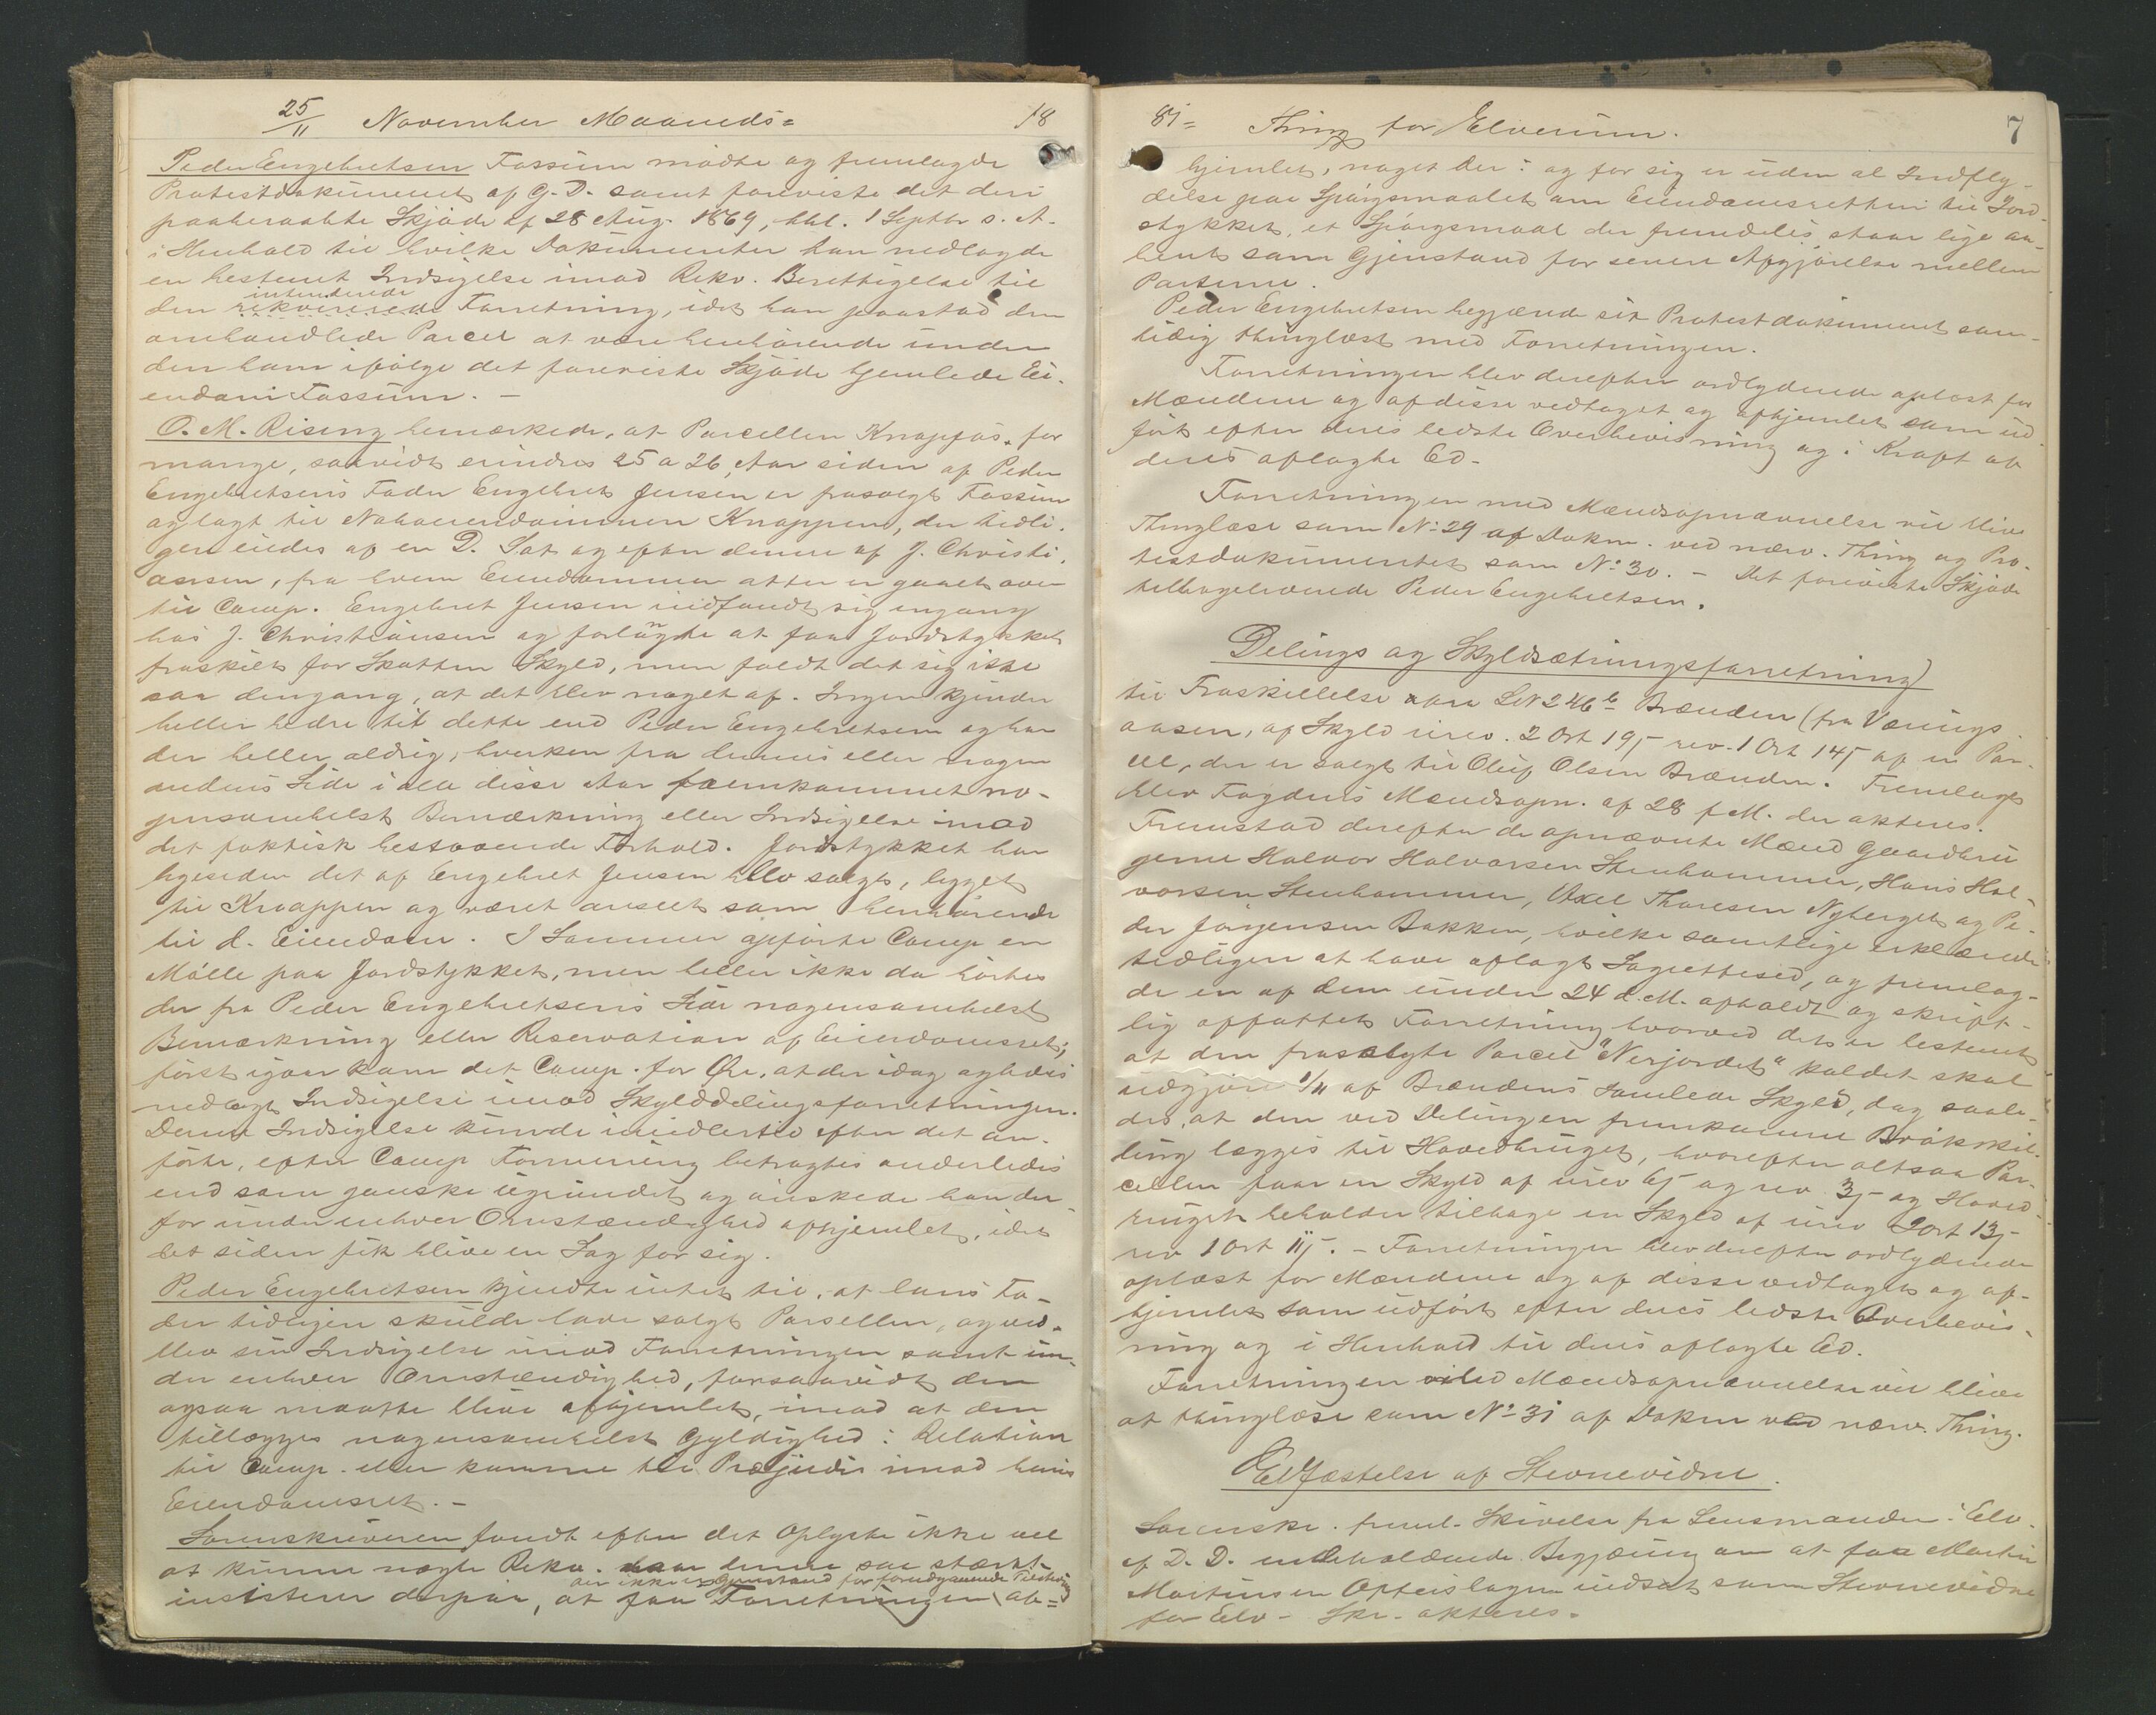 25/11 November Maaneds= 18
Peder Engebretsen Fossum mødte og fremlagde
Protestdokument af G. D. samt foreviste det deri
paaberaabte Skjøde af 28 Aug. 1869, thl. 1 Septbr s. A.
i Henhold til hvilke Dokumenter han nedlagde
en bestemt Indsigelse imod Rekv. Berettigelse til
intenderede
den rekvirerede Forretning, idet han paastod den
omhandlede Parcel at være henhørende under
den ham ifølge det foreviste Skjøde hjemlede Ei-
endom Fossum. –
O. M. Rising bemærkede, at Parcellen Knapfos for
mange, saavidt erindres 25 a 26, Aar siden af Peder
Engebretsens Fader Engebret Jensen er frasolgt Fossum
og lagt til Naboeiendommen Knappen, der tidli-
gere eiedes af en D. Sat og efter denne af J. Christi-
ansen, fra hvem Eiendommen atter er gaaet over
til Comp. Engebret Jensen indfandt sig engang
hos J. Christiansen og forlangte at faa Jordstykket
fraskilt for Skatten Skyld, men foldt det sig ikke
saa dengang, at det blev noget af. Ingen kjender
heller bedre til dette end Peder Engebretsen og har
der heller aldrig, hverken fra dennes eller nogen
andens Side i alle disse Aar fremkommet no-
gensomhelst Bemærkning eller Indsigelse imod
det faktisk bestaaende Forhold. Jordstykket har
ligesiden det af Engebret Jensen blev solgt, ligget
til Knappen og været anseet som henhørende
til d. Eiendom. I Sommer opførte Comp en
Mølle paa Jordstykket, men heller ikke da hørtes
der fra Peder Engebretsens Side nogensomhelst
Bemærkning eller Reservation af Eiendomsret;
først igaar kom det Comp. for Øre, at der idag agtedes
nedlagt Indsigelse imod Skylddelingsforretningen.
Denne Indsigelse kunde imidlertid efter det an-
førte, efter Comp Formening betragtes anderledes
end som ganske ugrundet og ønskede han der
for under enhver Omstændighed afhjemlet, idet
det siden fik blive en Sag for sig.
Peder Engebretsen kjendte intet til, at hans Fa-
der tidligere skulde have solgt Parsellen, og ved-
blev sin Indsigelse imod Forretningen samt un-
der enhver Omstændighed, forsaavidt den
ogsaa maatte blive afhjemlet, imod at den
tillægges nogensomhelst Gyldighed i Relation
til Comp. eller komme til Præjudis imod hans
Eiendomsret. –
Sorenskriveren fandt efter det Oplyste ikke vel
at kunne nægte Rekv. naar denne saa stærkt
der ikke er Gjenstand for foregaaende Tilstevning
insisterer derpaa, at faa Forretningen af=
81= Thing for Elverum. 7
hjemlet, noget der i og for sig er uden al Indfly-
delse paa Spørgsmaalet om Eiendomsretten til Jord-
stykket, et Spørgsmaal der fremdeles staar lige aa-
bent som Gjenstand for senere Afgjørelse mellem
Parterne.
Peder Engebretsen begjærede sit Protestdokument sam-
tidig thinglæst med Forretningen.
Forretningen blev derefter ordlydende oplæst for
Mændene og af disse vedtaget og afhjemlet som ud-
ført efter deres bedste Overbevisning og i Kraft af
deres aflagte Ed.
Forretningen med Mændsopnævnelse vil blive
Thinglæse som No 29 af Dokm. ved nærv. Thing og Pro-
testdokumentet som No 30. – Det foreviste Skjøde
tilbageleveredes Peder Engebretsen.
Delings og Skyldsætningsforretning
til Fraskillelse fra LN 246b Brænden (fra Vænings
aasen, af Skyld urev. 2 Ort 19 rev. 1 Ort 14 af en Par-
cel, der er solgt til Oluf Olsen Brænden. Fremlagt
blev Fogdens Mændsopn. af 28 f M. der akteres.
Fremstod derefter de opnævnte Mænd Gaardbru
gerne Halvor Halvorsen Stenhammer, Hans Hal-
vorsen Stenhammer, Axel Thoresen Nyberget og Pe-
der Jørgensen Bakken, hvilke samtlige erklærede
tidligere at have aflagt Lagrettesed, og fremlag-
de en af dem under 24 d. M. afholdt og skrift-
lig affattet Forretning hvorved det er bestemt
at den frasolgte Parcel "Nerjordet" kaldet skal
udgjøre 1/11 af Brændens samlede Skyld, dog saale-
des, at den ved Delingen fremkomne Brøkskil-
ling lægges til Hovedbruget, hvorefter altsaa Par-
cellen faar en Skyld af urev 6 og rev 3 og Hoved-
bruget beholder tilbage en Skyld af urev 2 Ort 13
rev 1 Ort 11. – Forretningen blev derefter ordlydende
oplæst for Mændene og af disse vedtaget og af-
hjemlet som udført efter deres bedste Overbevis-
ning og i Henhold til deres aflagte Ed.
Forretningen med Mændsopnævnelse vil blive
at thinglæse som No 31 af Dokm ved nærv. Thing.
Edfæstelse af Stevnevidne.
Sorenskr. freml. Skrivelse fra Lensmanden i Elv.
af D. D. indeholdende Begjæring om at faa Martin
Martinsen Opteislagen indsat som Stevnevidne
for Elv – Skr. akteres.